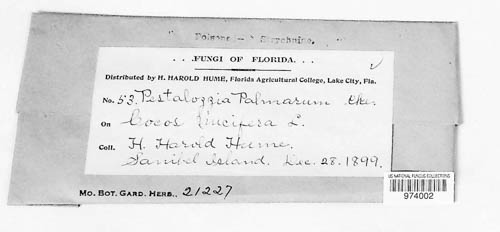 Poisons - Strychnine.
FUNGI OF FLORIDA.
Distributed by H. HAROLD HUME, Florida Agricultural College, Lake City, Fla.
No. 53. Pestalozzia Palmarum Cke.
On Cocos nucifera L.
Coll. H. Harold Hume.
Sanibel Island. Dec. 28. 1899.
MO. BOT. GARD. HERB., 21227
US NATIONAL FUNGUS COLLECTIONS
974002